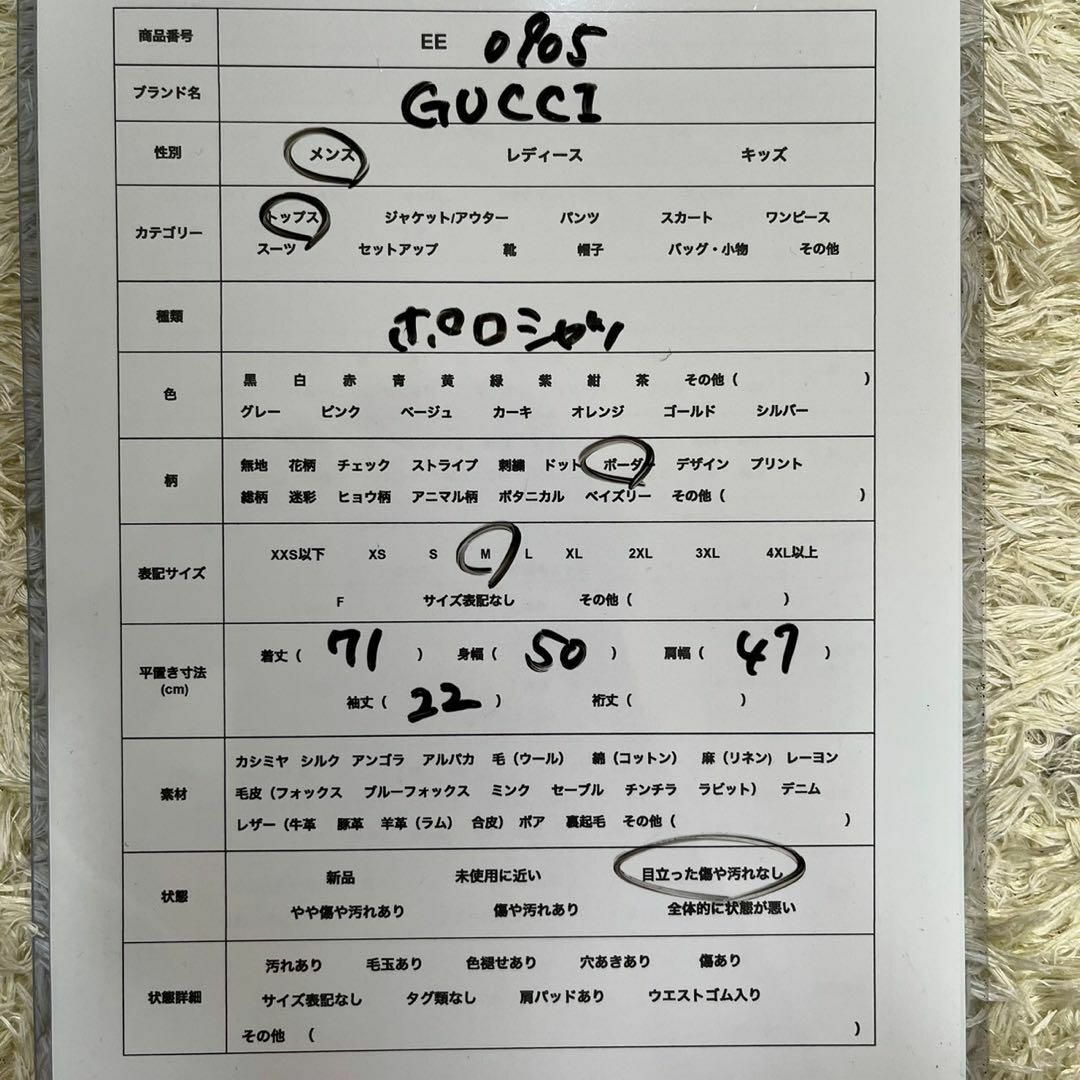 商品番号 EE 0905
ブランド名 GUCCI
性別 メンズ レディース キッズ
カテゴリー トップス ジャケット/アウター パンツ スカート ワンピース
スーツ セットアップ 靴 帽子 バッグ・小物 その他
種類 ポロシャツ
色 黒 白 赤 青 黄 緑 紫 紺 茶 その他（ ）
グレー ピンク ベージュ カーキ オレンジ ゴールド シルバー
柄 無地 花柄 チェック ストライプ 刺繍 ドット ボーダー デザイン プリント
総柄 迷彩 ヒョウ柄 アニマル柄 ボタニカル ペイズリー その他（ ）
表記サイズ XXS以下 XS S M L XL 2XL 3XL 4XL以上
F サイズ表記なし その他（ ）
平置き寸法 着丈（ 71 ） 身幅（ 50 ） 肩幅（ 47 ）
(cm) 袖丈（ 22 ） 裄丈（ ）
素材 カシミヤ シルク アンゴラ アルパカ 毛（ウール） 綿（コットン） 麻（リネン） レーヨン
毛皮（フォックス ブルーフォックス ミンク セーブル チンチラ ラビット） デニム
レザー（牛革 豚革 羊革（ラム） 合皮） ボア 裏起毛 その他（ ）
状態 新品 未使用に近い 目立った傷や汚れなし
やや傷や汚れあり 傷や汚れあり 全体的に状態が悪い
状態詳細 汚れあり 毛玉あり 色褪せあり 穴あきあり 傷あり
サイズ表記なし タグ類なし 肩パッドあり ウエストゴム入り
その他 （ ）